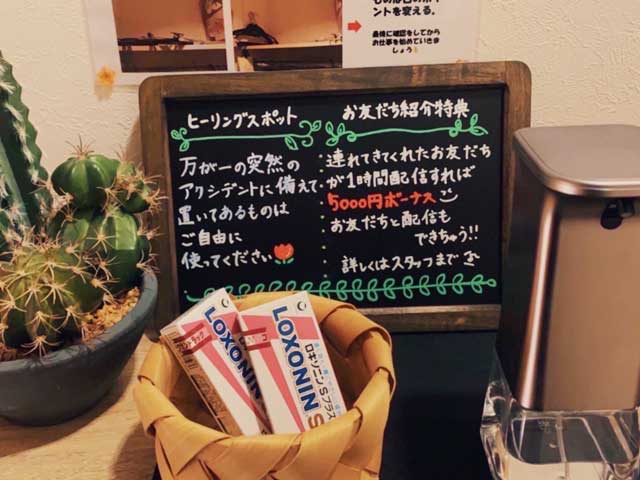 ントを変える。
最後に確認をしてから
お仕事を始めていきま
しょう
ヒーリングスポット
万が一の突然の
アクシデントに備えて
置いてあるものは
ご自由に
使ってください
お友だち紹介特典
連れてきてくれたお友だち
が1時間配信すれば
5000円ボーナス
お友だちと配信も
できちゅう!!
詳しくはスタッフまで
LOXONIN
LOXONIN S
ロキソニンSプラス